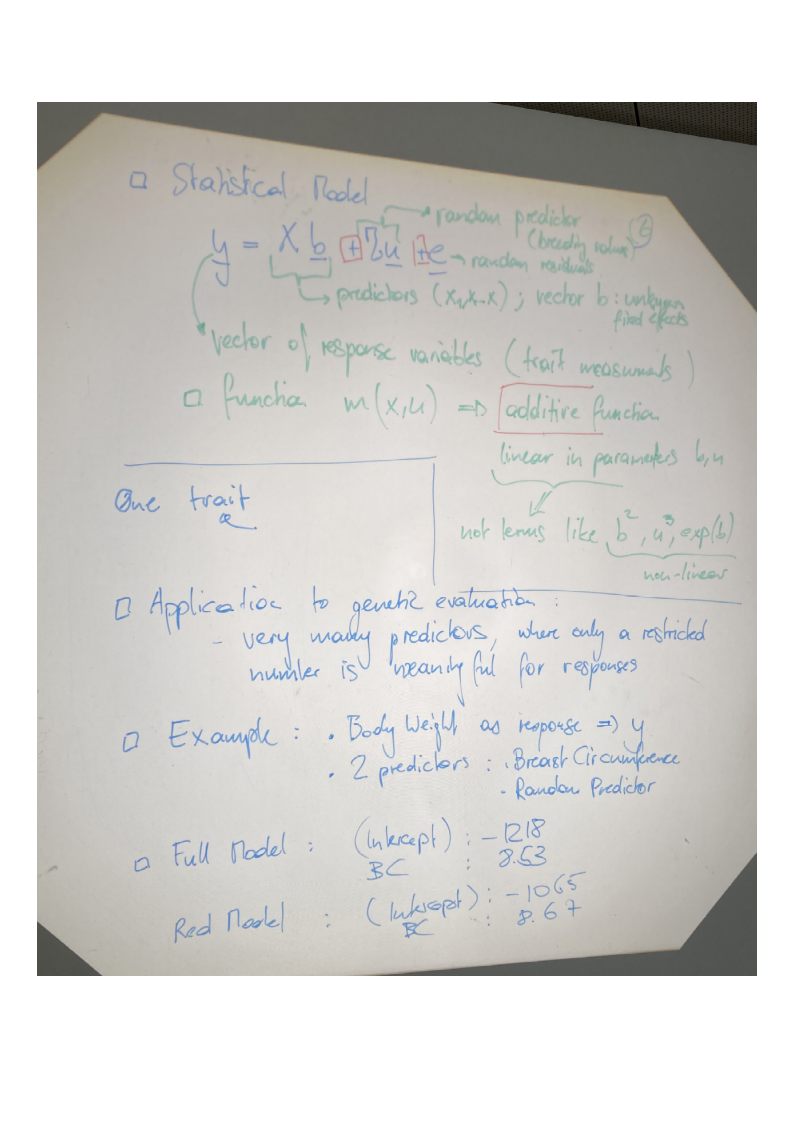 Statistical Model
y = X b + Zu + e
random predictor
(breeding value)
random residuals
predictors (x, x..x) ; vector b : unknown
fixed effects
vector of response variables (trait measurements)
function m(x,u) ⇒ additive function
linear in parameters b, u
not terms like b², u³, exp(b)
non-linear
One trait
Application to genetic evaluation :
- very many predictors, where only a restricted
number is meaningful for responses
Example : . Body Weight as response ⇒ y
. 2 predictors : . Breast Circumference
- Random Predictor
Full Model : (Intercept) : -1218
BC : 8.53
Red Model : (Intercept) : -1065
BC : 8.67